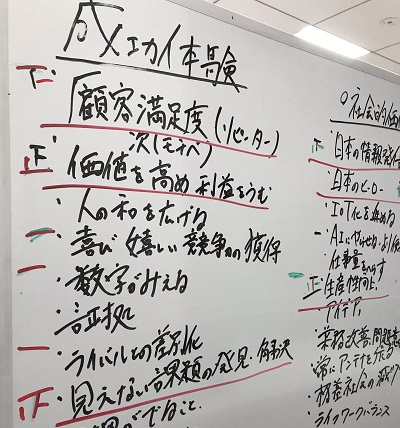 成功体験
「顧客満足度(リピーター)
次(モチベ)
正 価値を高め利益をうむ
・人の和を広げる
一・喜び 嬉しい 競争力の獲得
一・数字がみえる
・証拠
一・ライバルとの差別化
・見えない課題の発見・解決
○社会的価
・日本の情報発
日本のヒーロー
・IoT化を進める
・AIに
仕事量をへらす
正・生産性向上
アイデア
・業務改善、問題
・常にアンテナを
・格差社会の減少
・ライフワークバランス